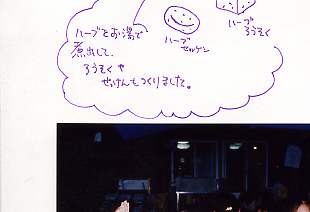 ハーブ
ろうそく
ハーブをお湯で
煮出して、
ろうそくや
せっけんもつくりました。
ハーブ
セッケン